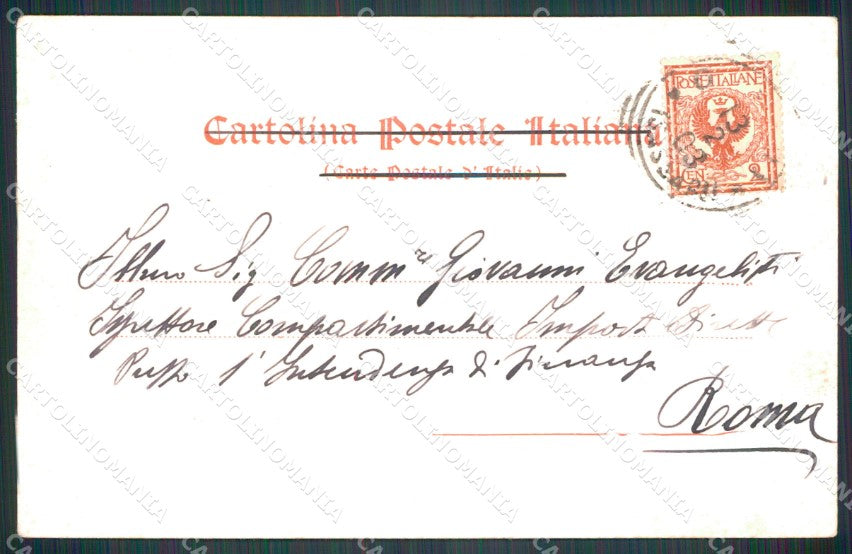 Cartolina Postale Italiana
(Carte Postale d'Italie)
POSTE ITALIANE
CEN 2
13 2 03
Illmo Sig Commre Giovanni Evangelisti
Ispettore Compartimentale Imposte Dirette
Presso l'Intendenza di Finanza
Roma
CARTOLINOMANIA